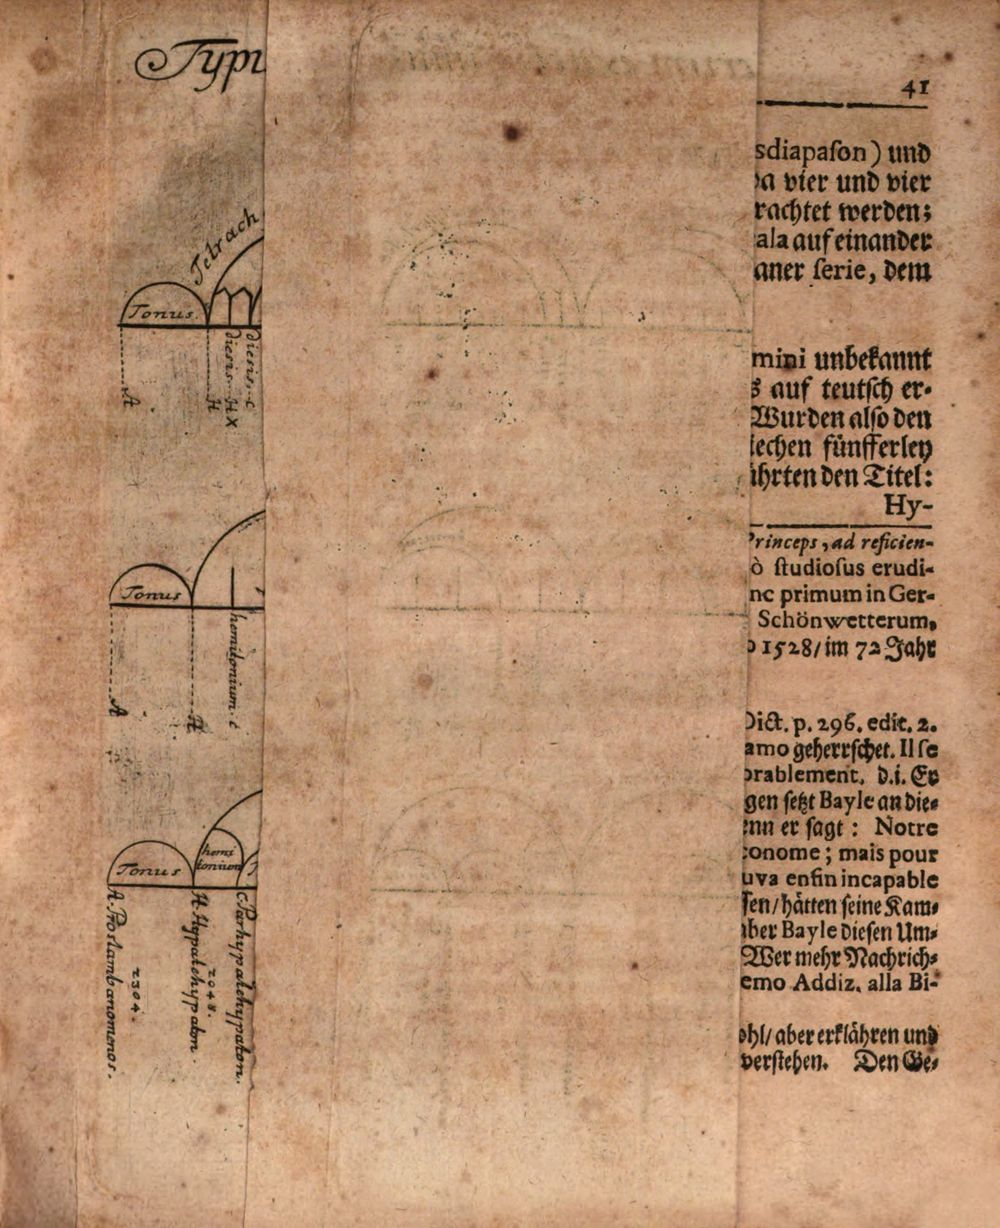 Typi
Tetrach
Tonus.
A
H
diesis. HX
diesis. C
Tonus
A
H
hemitonium. C
Tonus
hemi
tonium
A. Proslambanomenos.
2304.
H. Hypatehypaton.
2048.
C. Parhypatehypaton.
41
sdiapaſon) und
da vier und vier
rachtet werden;
ala auf einander
aner ſerie, dem
mini unbekannt
s auf teutſch er-
Wurden alſo den
iechen fünfferley
ührten den Titel:
Hy-
Princeps, ad reficien-
ò ſtudioſus erudi-
nc primum in Ger-
Schönwetterum,
o 1528/ im 72 Jahr
Dict. p. 296. edit. 2.
amo geherrſchet. Il ſe
orablement. d.i. Er
gen ſetzt Bayle an die-
enn er ſagt: Notre
conome; mais pour
uva enfin incapable
ſen/ hätten ſeine Kam-
aber Bayle dieſen Um-
Wer mehr Nachrich-
emo Addiz. alla Bi-
ohl/ aber erklähren und
verſtehen. Den Ge-